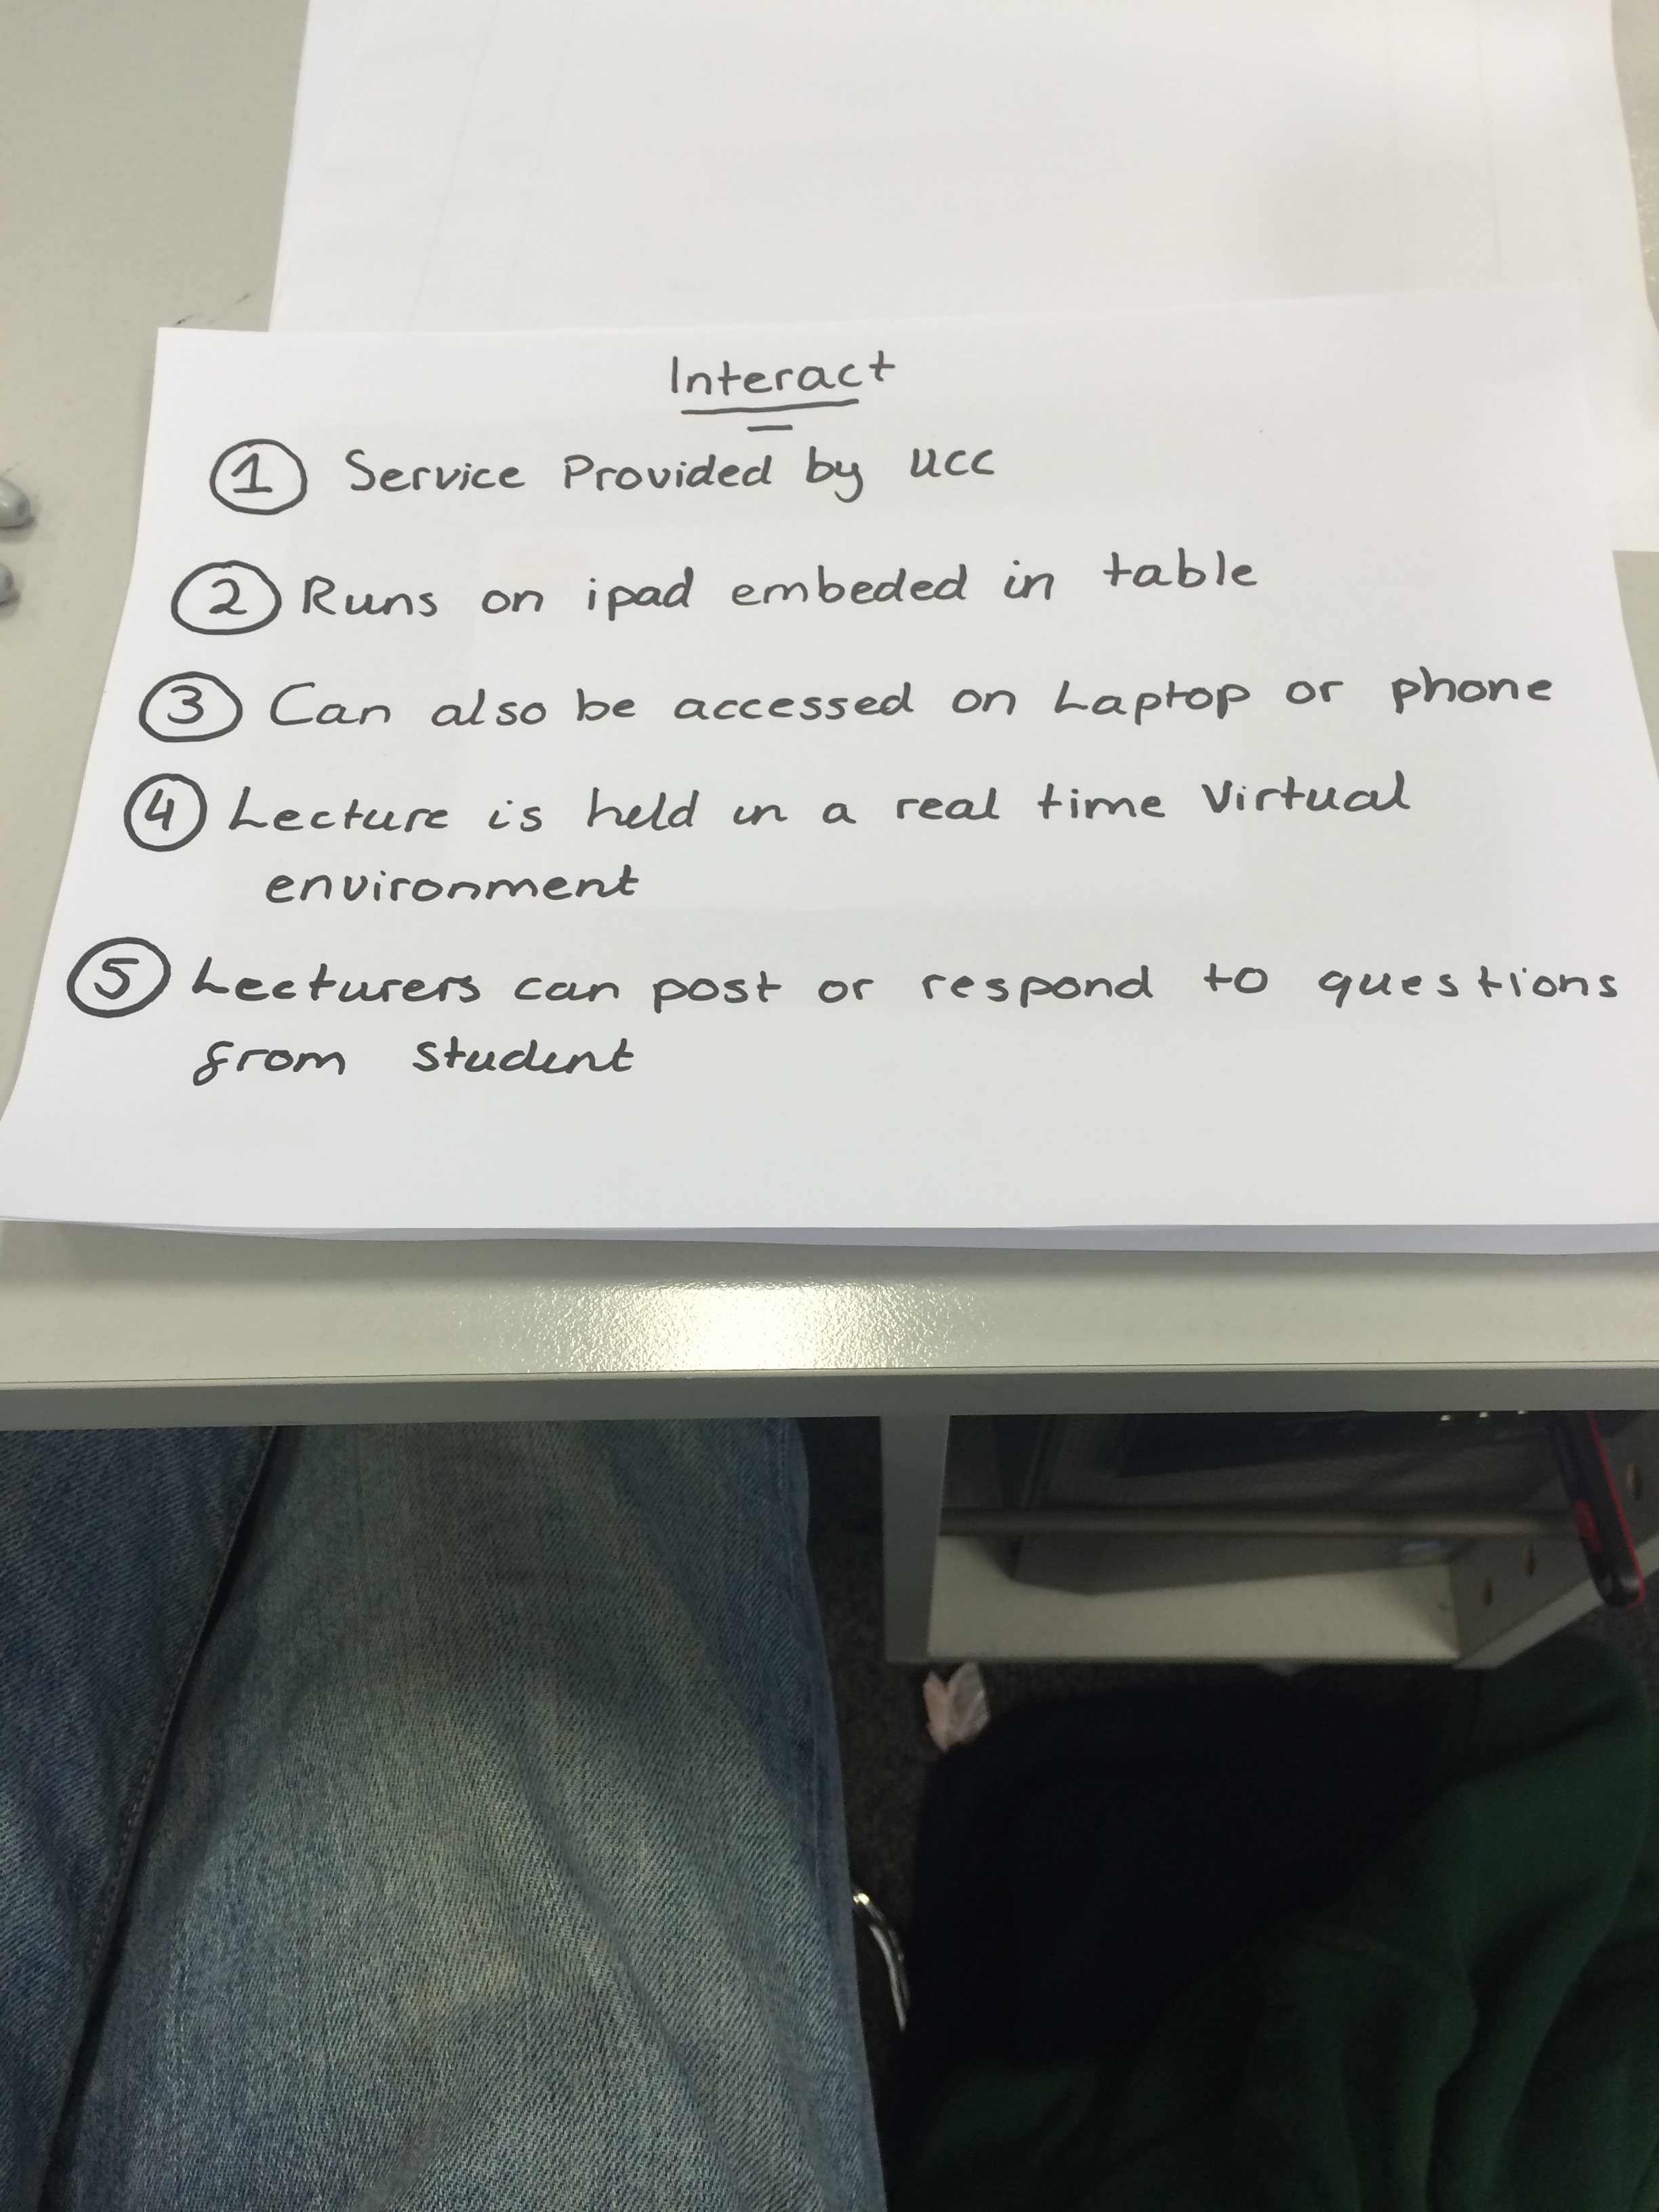 Interact
1 Service Provided by UCC
2 Runs on ipad embeded in table
3 Can also be accessed on Laptop or phone
4 Lecture is held in a real time Virtual
environment
5 Lecturers can post or respond to questions
from student